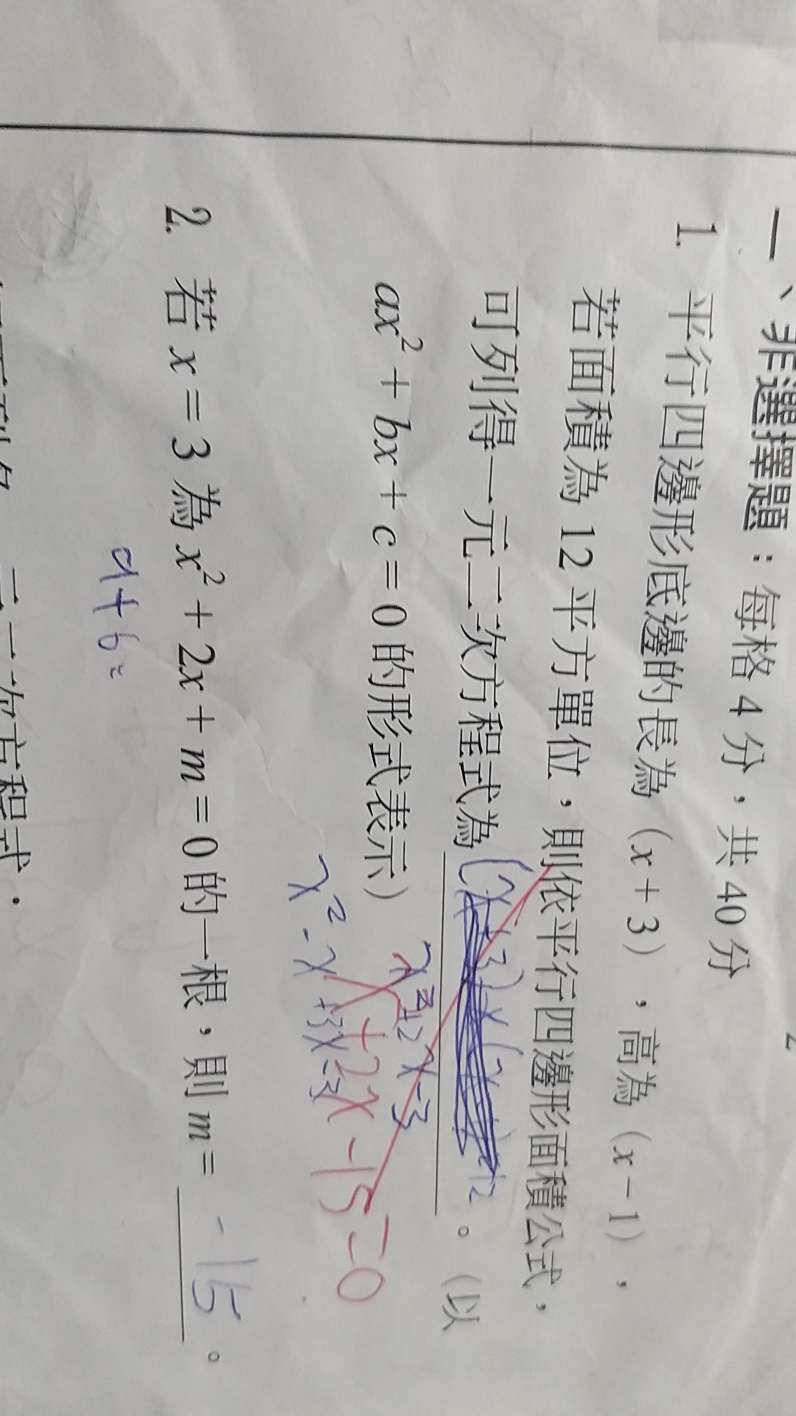 一、非選擇題：每格 4 分，共 40 分
1. 平行四邊形底邊的長為（x + 3），高為（x − 1），
若面積為 12 平方單位，則依平行四邊形面積公式，
可列得一元二次方程式為 。（以
x²+2x-3
ax² + bx + c = 0 的形式表示）
x²+2x-15=0
x²-x+3x-3
2. 若 x = 3 為 x² + 2x + m = 0 的一根，則 m = -15 。
a+b=